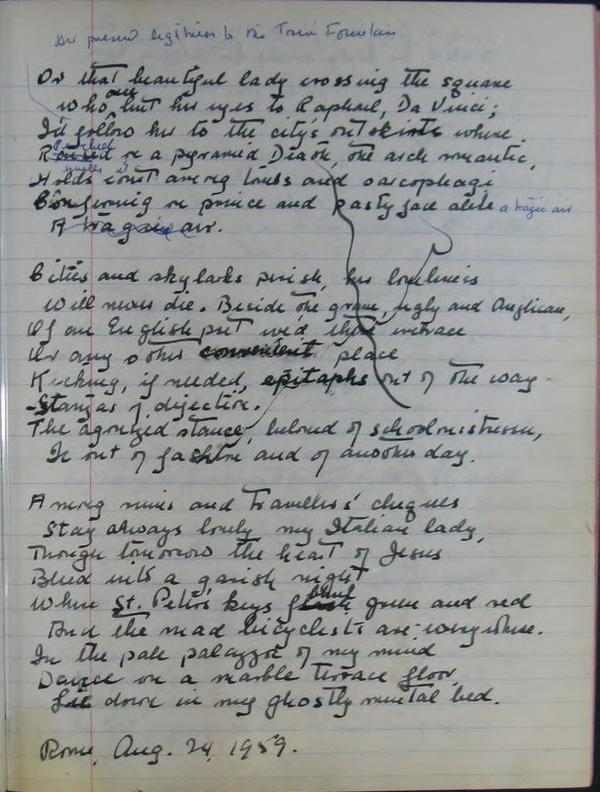 Or that beautiful lady crossing the square
Who but her eyes to Raphael, Da Vinci;
I'd follow her to the city's outskirts where
Perched
on a pyramid Death, the arch romantic,
Holds court among tombs and sarcophagi
on prince and pasty face alike a tragic air
A tragic air.
Cities and skylarks perish, her loneliness
Will never die. Beside the grave, ugly and Anglican,
Of an English poet we'd then embrace
Or any other convenient place
Kicking, if needed, epitaphs out of the way.
Stanzas of dejection.
The agonized stance, beloved of schoolmistresses,
Is out of fashion and of another day.
Among ruins and travellers' cheques
Stay always lovely my Italian lady,
Though tomorrow the heart of Jesus
Bleed into a garish night
Where St. Peter's keys green and red
And the mad bicyclists are everywhere.
In the pale palazzos of my mind
Dance on a marble terrace floor
Lie down in my ghostly mental bed.
Rome, Aug. 24, 1959.